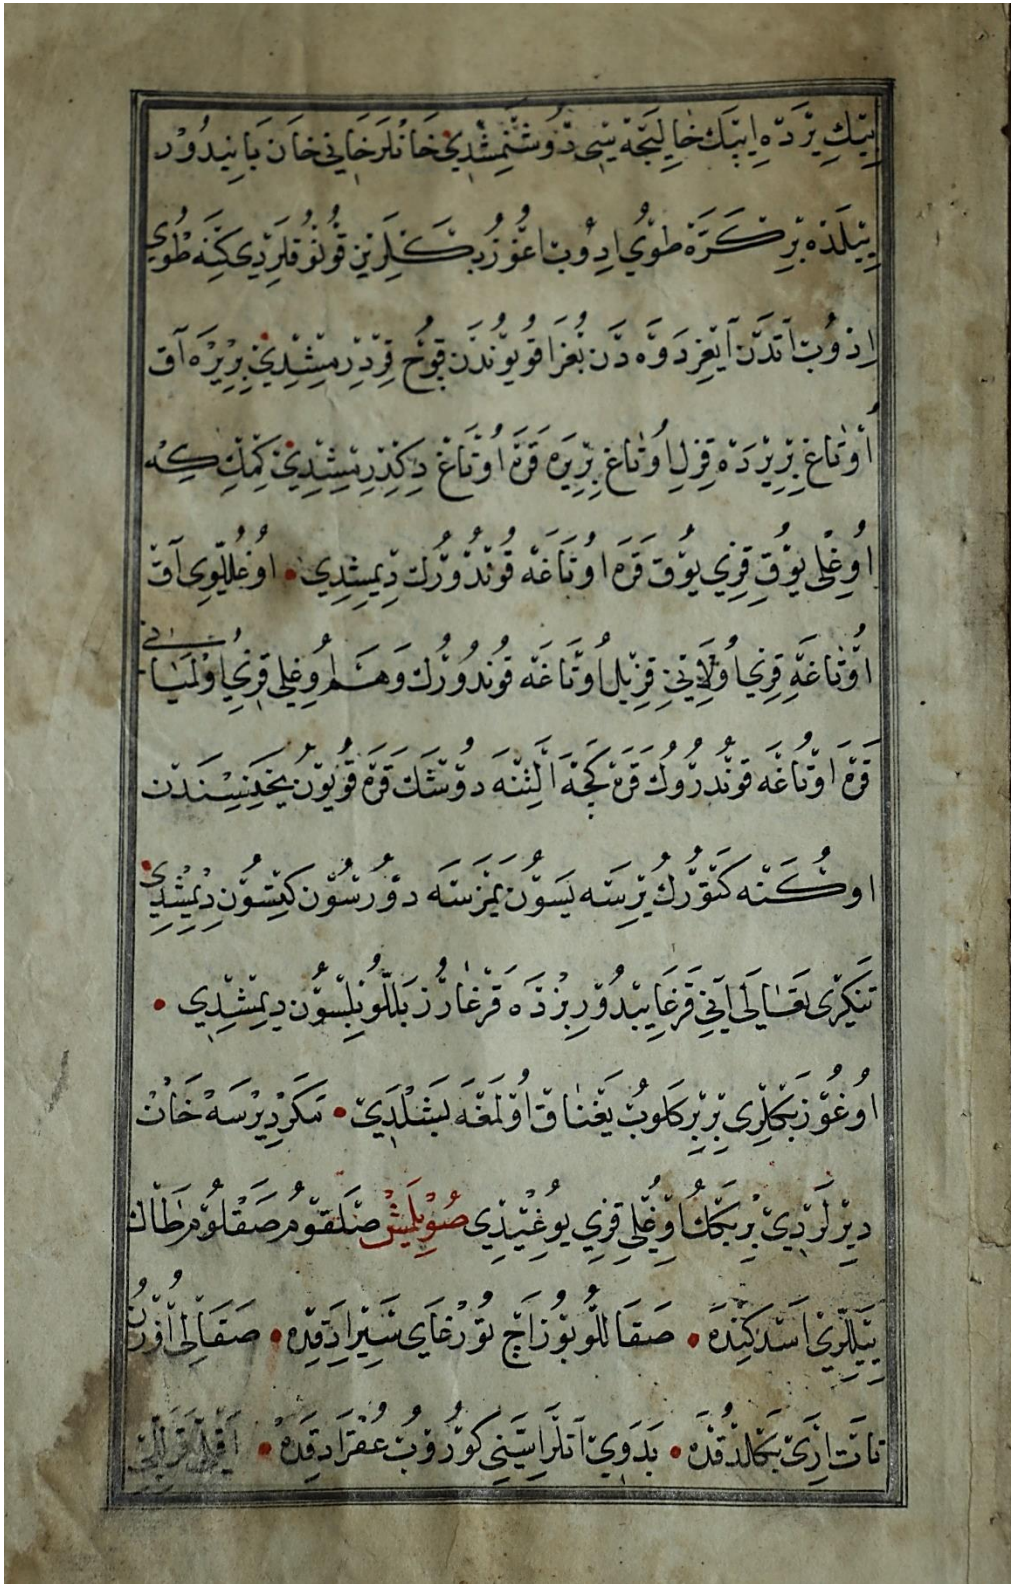 بِيْك يِرْدَه اِيپَك خالِيجَه سِی دُوشَنْمِشْدِي خانْلَر خانِي خان بايِنْدُوْر
يِيْلَدَه بِر كَرَّه طُوْي اِدُوب اغُوز بَكْلَرِيْن قُونُوقْلَرْدِي كِنَه طُوي
اِدُوب آتْدَن اَيْغِر دَوَه دَن بُغْرا قُويُونْدَن قُوچ قِرْدِرْمِشْدِي بِر يِرَه آق
اُوْتاغ بِر يِرْدَه قِزِل اُوتاغ بِر يِرَه قَرَه اُوتاغ دِكْدِرمِشِدِي كِمْك كِه
اُوغْلِی يُوْق قِزِي يُوْق قَرَه اُوتاغَه قُونْدُورُك دِيمِشِدِي • اُوغُللُوِي آق
اُوْتاغَه قِزِي اُولانِي قِزِيل اُوتاغَه قُونْدُورُك وَهَم اُوغِلی قِزِي اُولْمَيانی
قَرَه اُوتاغَه قُونْدُرُوك قَرَه كَچَه اَلْتِنَه دُوشَك قَرَه قُويُون يَخْنِيسِنْدَن
اوكُنَه كَتُورُك يِرسَه يَسُون يَمَزسَه دُورْسُون كِتْسُون دِيْمِشْدِي
تَنكرِی تَعالَی اَنِي قَرْغايِبْدُور بِزْدَه قَرْغارُز بَللُو بِلْسُون دِيمِشِدِي •
اُوغُوز بَكْلَرِی بِر بِر كَلوُب يَغْناق اُوْلمَغَه بَشْلَدِي • مَكَر دِيرْسَه خانْ
دِيرْلَرْدِي بِر بَكُك اُوغْلِی قِزِي يُوغِيْدِي صُويلَمِش صَلْقُوم صَقْلُوم طاك
يِيَلْلَرِي اَسَدكِنْدَه • صَقاللُو بُوز اَچ تُورْغاي سَيْرادَقِدَه • صَقالِی اُوزُن
تات اِرِي بَكْلَدُقْدَه • بَدَوي آتْلَر اِيَسِنِی كوُرُوُب عُقْرادقِدَه •